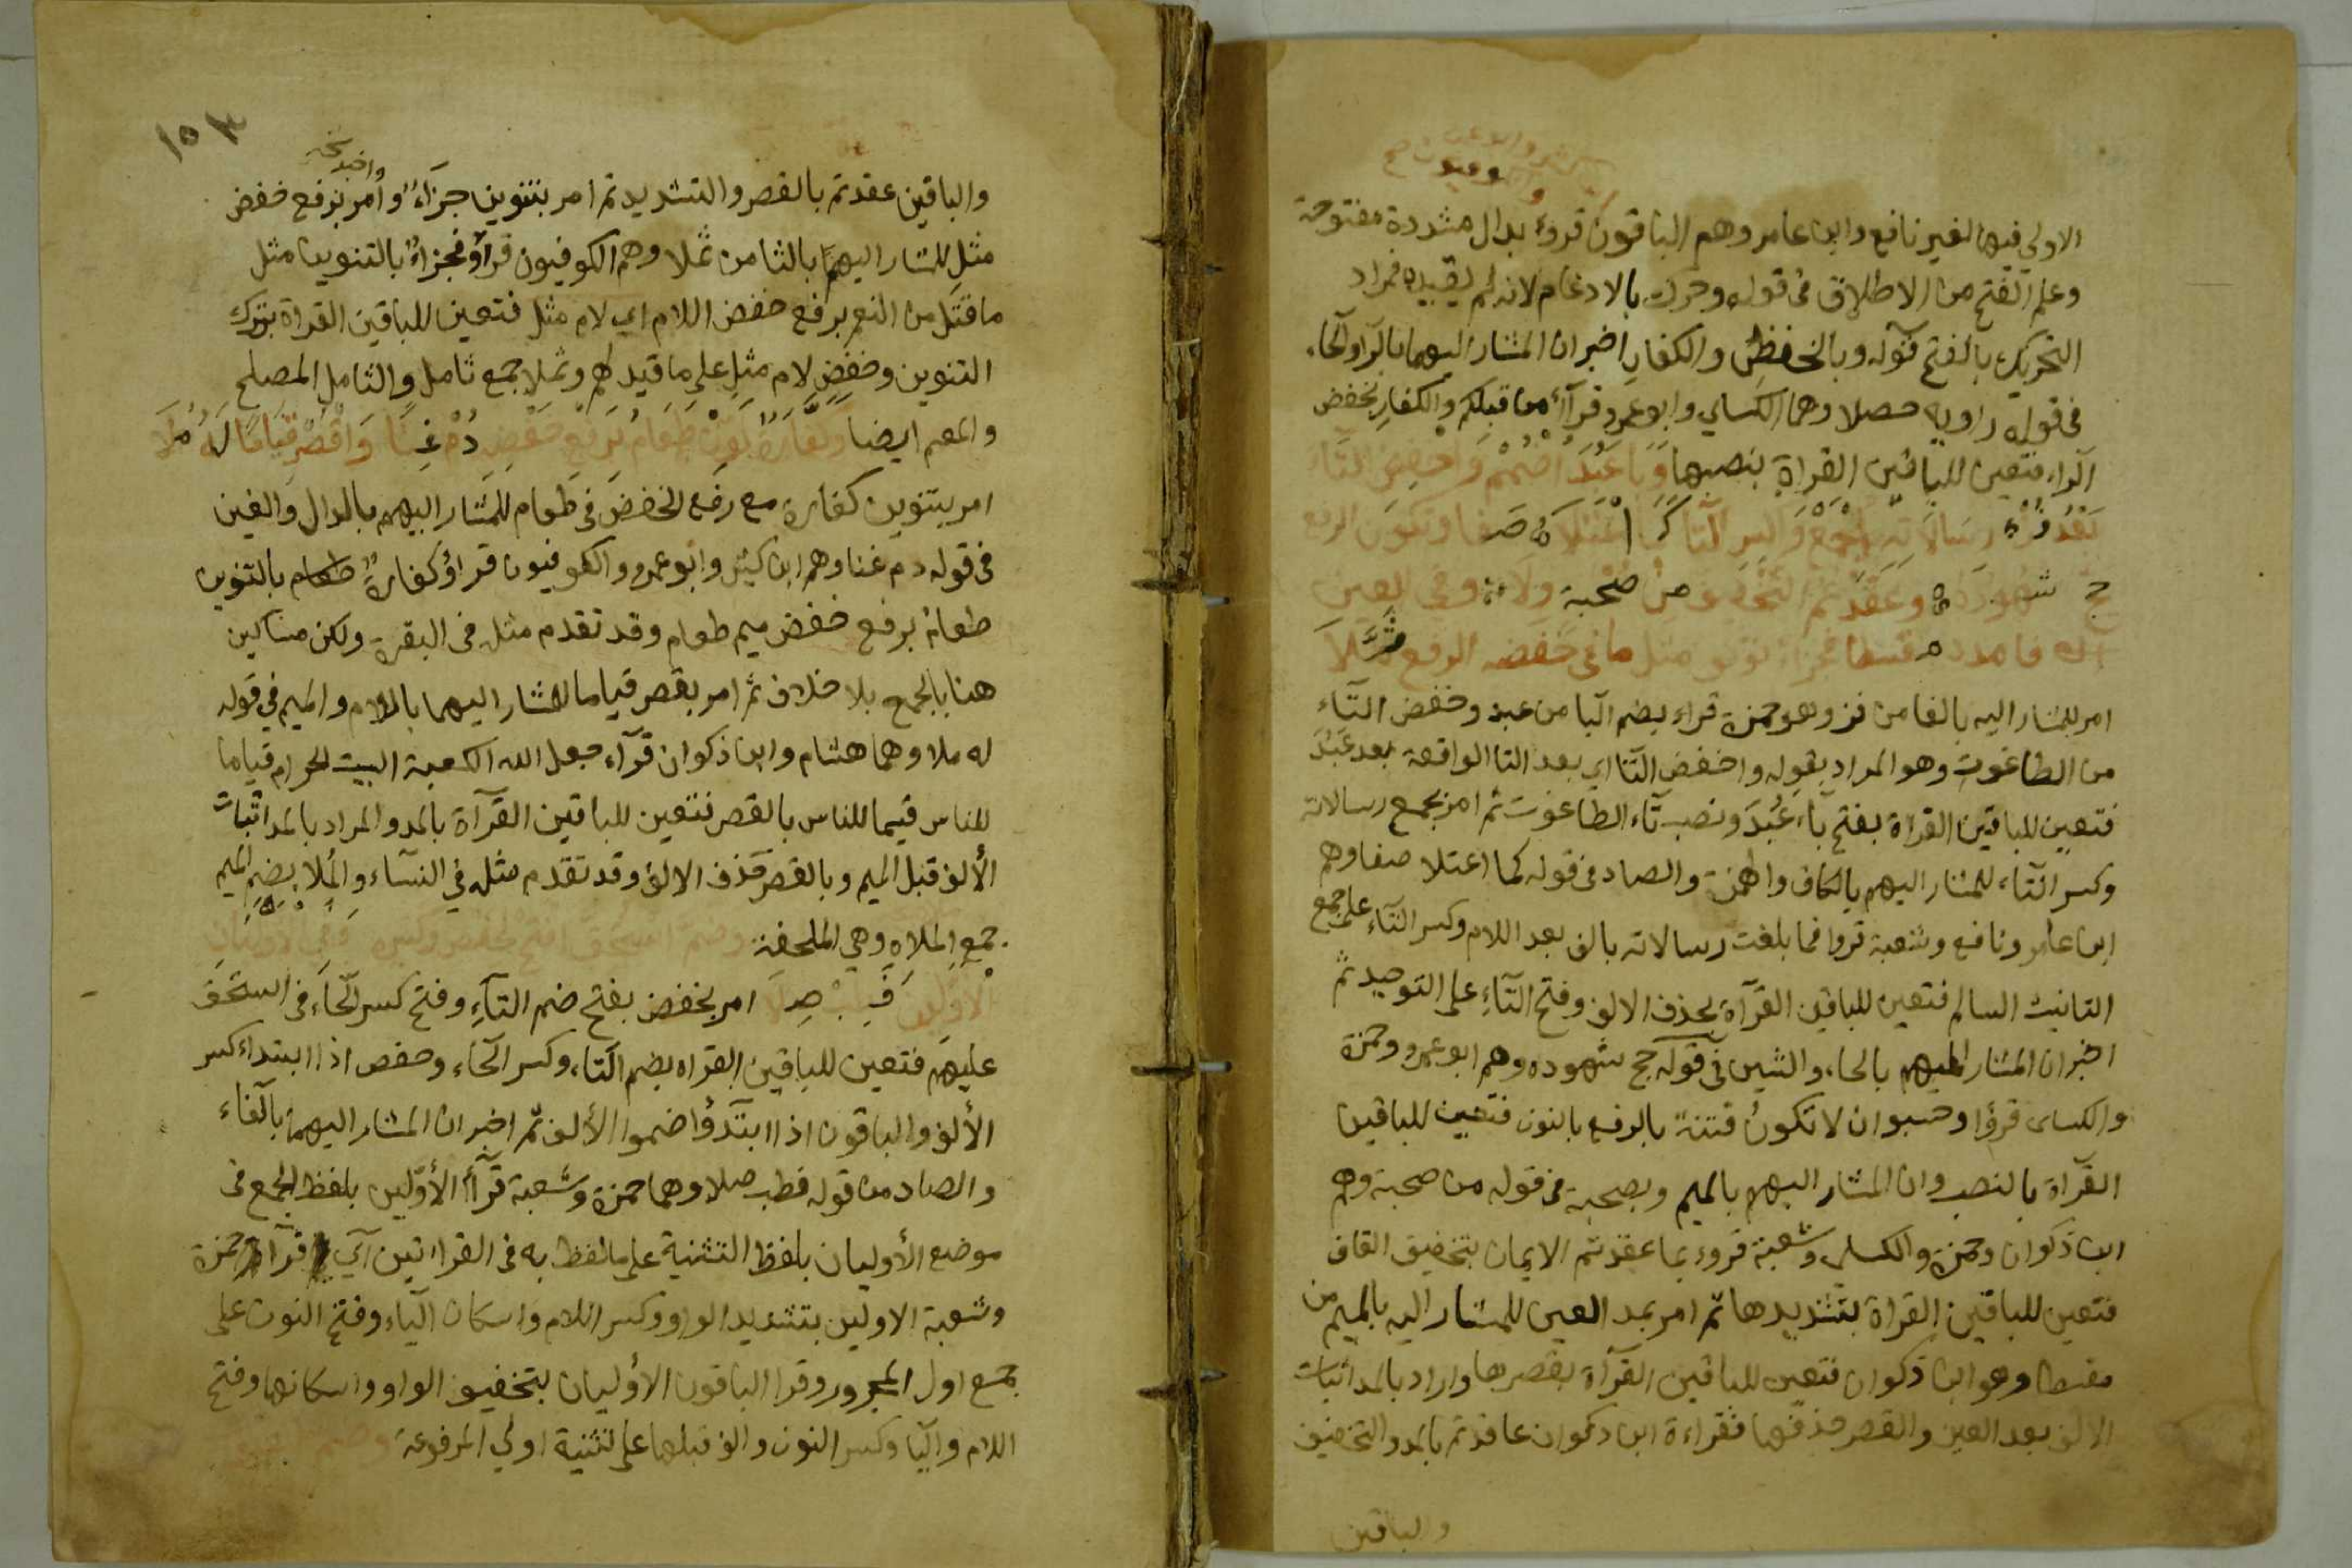 الاولى فيها لغير نافع وابن عامر وهم الباقون قروء بدال مشددة مفتوحة
وعلم الفتح من الاطلاق في قوله وحرك بالادغام لانه لم يقيده فمراد
التحريك بالفتح قوله وبالخفض والكفار اخبر ان المشار اليهما بالرا والحاء
في قوله راويه حصلا وهما الكساي وابو عمرو قرآأ من قبلكم والكفارِ بخفض
الراء فتعين للباقين القراة بنصبها وَبَا عَبُدَ اضْمُمْ وَاخفِضِ التَّاءَ
بَعْدُ فُزْ رِسَالَاتِهِ اجْمَعْ وَاكسِرِ التَّا كَمَا اعْتَلَا صَفا وتَكونَ الرفع
حج شهودَهُ وعَقَدتمُ التخفيف من صحبة ولا وفي العين
فامدد مقسطا فجزاء نونو مثل ما في خفضه الرفع ثُمِّلَا
امر للمشار اليه بالفا من فز وهو حمزة قراء بضم البا من عبد وخفض التاء
من الطاغوت وهو المراد بقوله واخفض التا اي بعد التا الواقعة بعد عَبُدَ
فتعين للباقين القراة بفتح باء عَبَدَ ونصب تاء الطاغوت ثم امر بجمع رسالاته
وكسر التاء للمشار اليهم بالكاف والهمزة والصاد في قوله كما اعتلا صفا وهم
ابن عامر ونافع وشعبة قروا فما بلغت رسالاته بالف بعد اللام وكسر التاء على جمع
التانيث السالم فتعين للباقين القرآة بحذف الالف وفتح التاءِ على التوحيد ثم
اخبر ان المشار اليهم بالحاء والشين في قوله حج شهوده وهم ابو عمرو وحمزة
والكساى قروٓا وحسبوا ان لا تكونُ فتنة بالرفع بالنون فتعين للباقين
القرآة بالنصب وان المشار اليهم بالميم وبصحبة في قوله من صحبة وهم
ابن ذكوان وحمزة والكساى وشعبة قروء بما عقدتم الايمان بتخفيف القاف
فتعين للباقين القراة بتشديدها ثم امر بمد العين للمشار اليه بالميم من
مقسطا وهو ابن ذكوان فتعين للباقين القرآة بقصرها واراد بالمد اثبات
الالف بعد العين والقصر حذفها فقراءة ابن ذكوان عاقدتم بالمد والتخفيف
والباقين
١٥٣
واخبر نخـ
والباقين عقدتم بالقصر والتشديد ثم امر بتنوين جزاءٌ وامر برفع خفض
مثلِ للمشار اليهم بالثا من ثملا وهم الكوفيون قرأو فجزاءٌ بالتنوين مثل
ما قتل من النعم برفع خفض اللام اي لام مثل فتعين للباقين القراة بترك
التنوين وخفضِ لام مثلِ على ما قيد لهم وثملا جمع ثامل والثامل المصلح
والمقيم ايضا وكفارةٌ نَوِّنْ طَعَامُ بَرَفعِ خَفضِ دُمْ غِنًا وَاقْصُرْ قِيَامًا لَهُ مُلَا
امر بتنوين كفارة مع رفع الخفض في طعام للمشار اليهم بالدال والغين
في قوله دم غنا وهم ابن كثير وابو عمرو والكوفيون قراؤ كفارةٌ طعام بالتنوين
طعامُ برفع خفض ميم طعام وقد تقدم مثله في البقرة ولكن مساكين
هنا بالجمع بلا خلاف ثم امر بقصر قياما للمشار اليهما باللام والميم في قوله
له ملا وهما هشام وابن ذكوان قرآء جعل الله الكعبة البيت الحرام قياما
للناس قيما للناس بالقصر فتعين للباقين القرآة بالمد والمراد بالمد اثبات
الألف قبل الميم وبالقصر حذف الالف وقد تقدم مثله في النسآء والمُلا بضم الميم
جمع الملاه وهي الملحفة وضم استحق افتح لحفص وكسره وفي الاوليان
الاوّلين فَطِبْ صِلَا امر لحفض بفتح ضم التآء وفتح كسر الحاء في استحق
عليهم فتعين للباقين القراه بضم التاء وكسر الحاء وحفص اذا ابتداء كسر
الألف والباقون اذا ابتدؤا ضموا الألف ثم اخبر ان المشار اليهما بالفاء
والصاد من قوله فطب صلا وهما حمزة وشعبة قرأأ الأوّلين بلفظ الجمع في
موضع الأوليان بلفظ التثنية على ما لفظ به في القراءتين اي قرآ حمزة
وشعبة الاولين بتشديد الواو وكسر اللام واسكان الياء وفتح النون على
جمع اول المجرور وقرا الباقون الأوليان بتخفيف الواو واسكانها وفتح
اللام واليا وكسر النون والف قبلها على تثنية اولى المرفوعة وضم